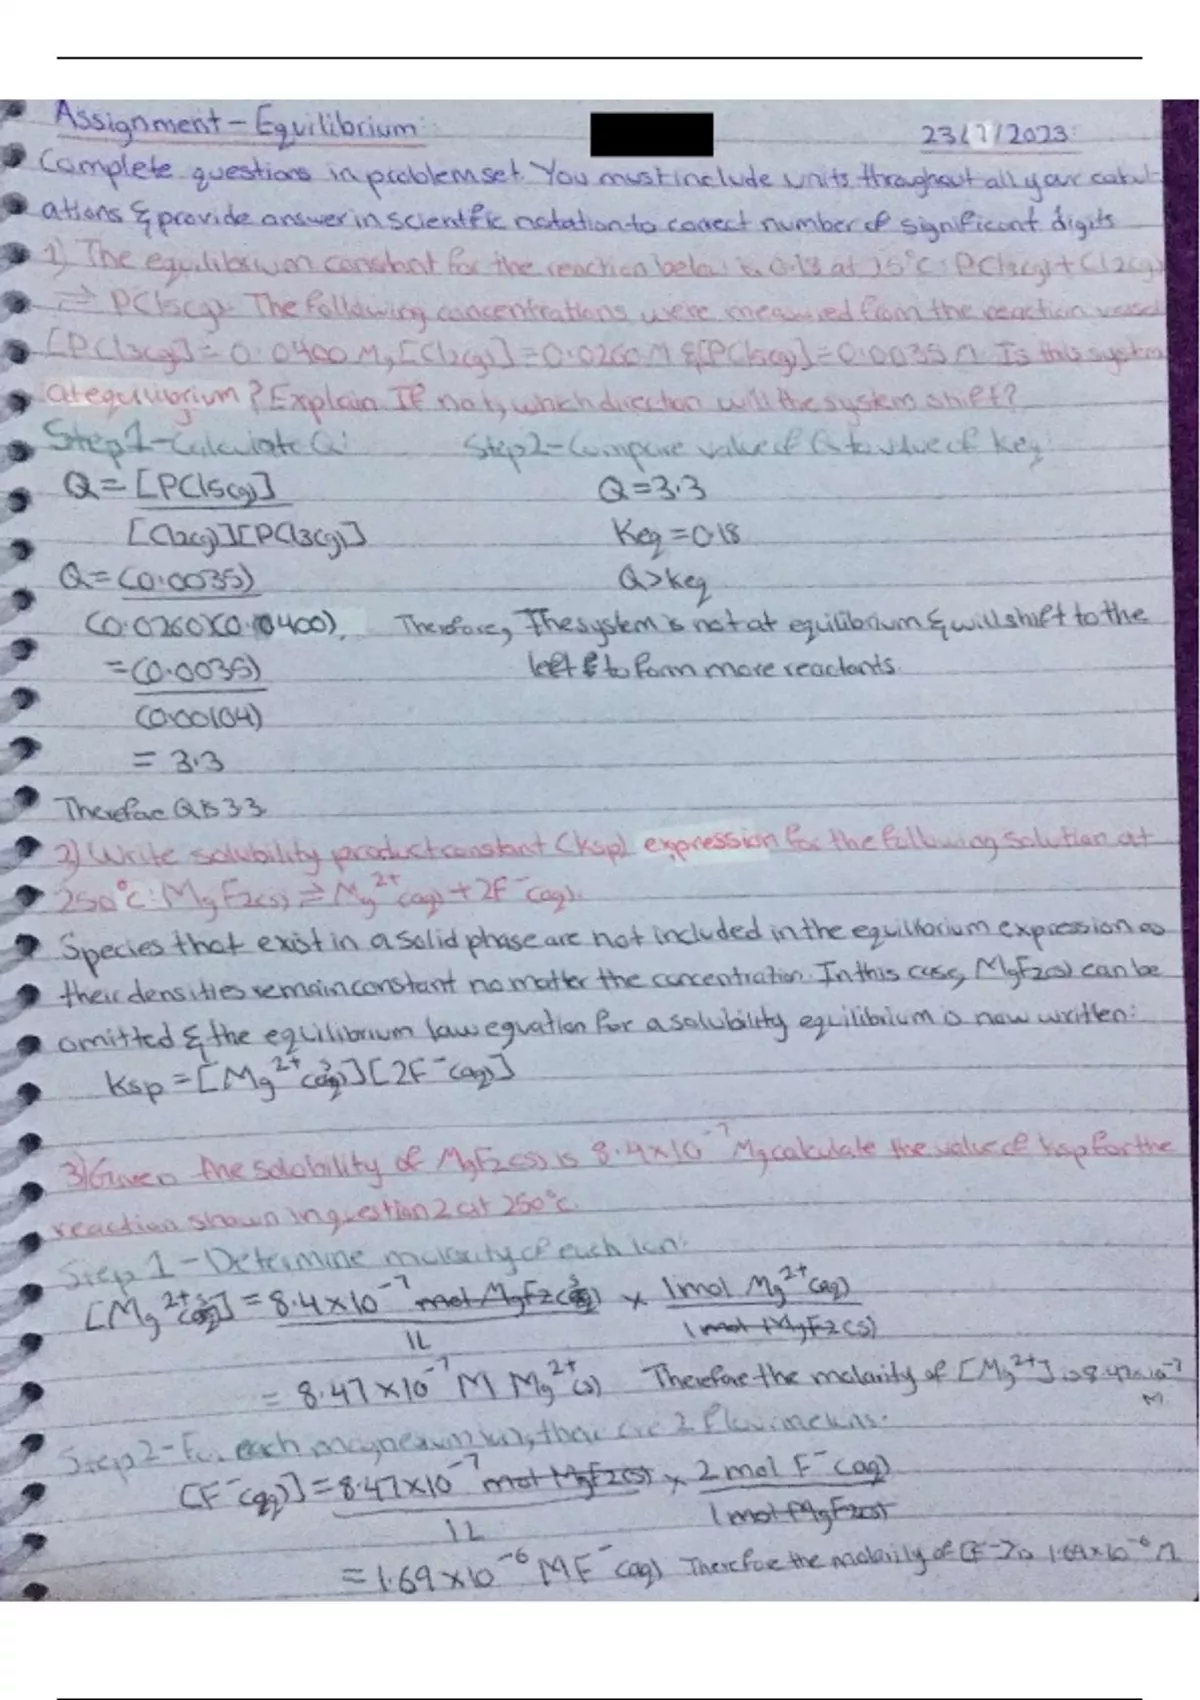 Assignment - Equilibrium
23/7/2023
Complete questions in problem set. You must include units throughout all your calcul-
ations & provide answer in scientific notation to correct number of significant digits
1) The equilibrium constant for the reaction below is 0.18 at 25°C: PCl3(g) + Cl2(g)
⇌ PCl5(g). The following concentrations were measured from the reaction vessel
[PCl3(g)] = 0.0400 M, [Cl2(g)] = 0.0260 M & [PCl5(g)] = 0.0035 M. Is this system
at equilibrium? Explain. If not, which direction will the system shift?
Step 1 - Calculate Q:
Step 2 - Compare value of Q to value of Keq:
Q = [PCl5(g)]
[Cl2(g)][PCl3(g)]
Q = (0.0035)
(0.0260)(0.0400)
= (0.0035)
(0.00104)
= 3.3
Therefore Q is 3.3
Q = 3.3
Keq = 0.18
Q > Keq
Therefore, The system is not at equilibrium & will shift to the
left to form more reactants.
2) Write solubility product constant (Ksp) expression for the following solution at
250°C: MgF2(s) ⇌ Mg2+(aq) + 2F-(aq).
Species that exist in a solid phase are not included in the equilibrium expression as
their densities remain constant no matter the concentration. In this case, MgF2(s) can be
omitted & the equilibrium law equation for a solubility equilibrium is now written:
Ksp = [Mg2+(aq)][2F-(aq)]
3) Given the solubility of MgF2(s) is 8.4 x 10-7 M, calculate the value of Ksp for the
reaction shown in question 2 at 250°C.
Step 1 - Determine molarity of each ion:
[Mg2+(aq)] = 8.4 x 10-7 mol MgF2(s) x 1 mol Mg2+(aq)
1L 1 mol MgF2(s)
= 8.47 x 10-7 M Mg2+(s) Therefore the molarity of [Mg2+] is 8.47 x 10-7
M
Step 2 - For each magnesium ion, there are 2 Flourine ions.
[F-(aq)] = 8.47 x 10-7 mol MgF2(s) x 2 mol F-(aq)
1L 1 mol MgF2(s)
= 1.69 x 10-6 M F-(aq) Therefore the molarity of [F-] is 1.69 x 10-6 M